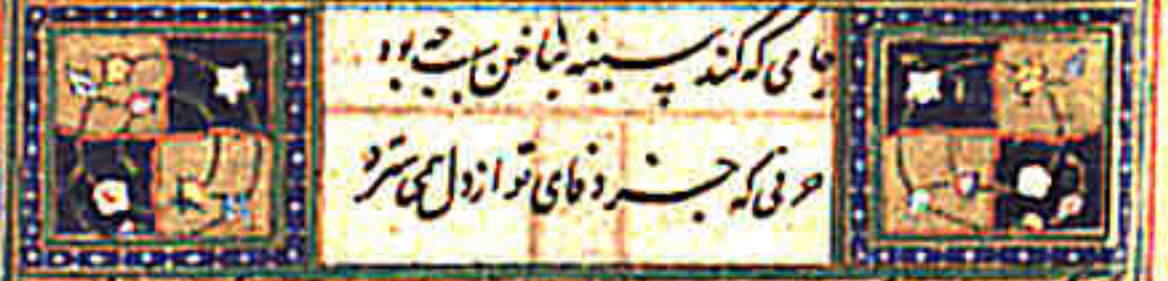 جامی که کند سینه بناخن سبب بود
حرفی که جز وفای تو از دل همی سترد